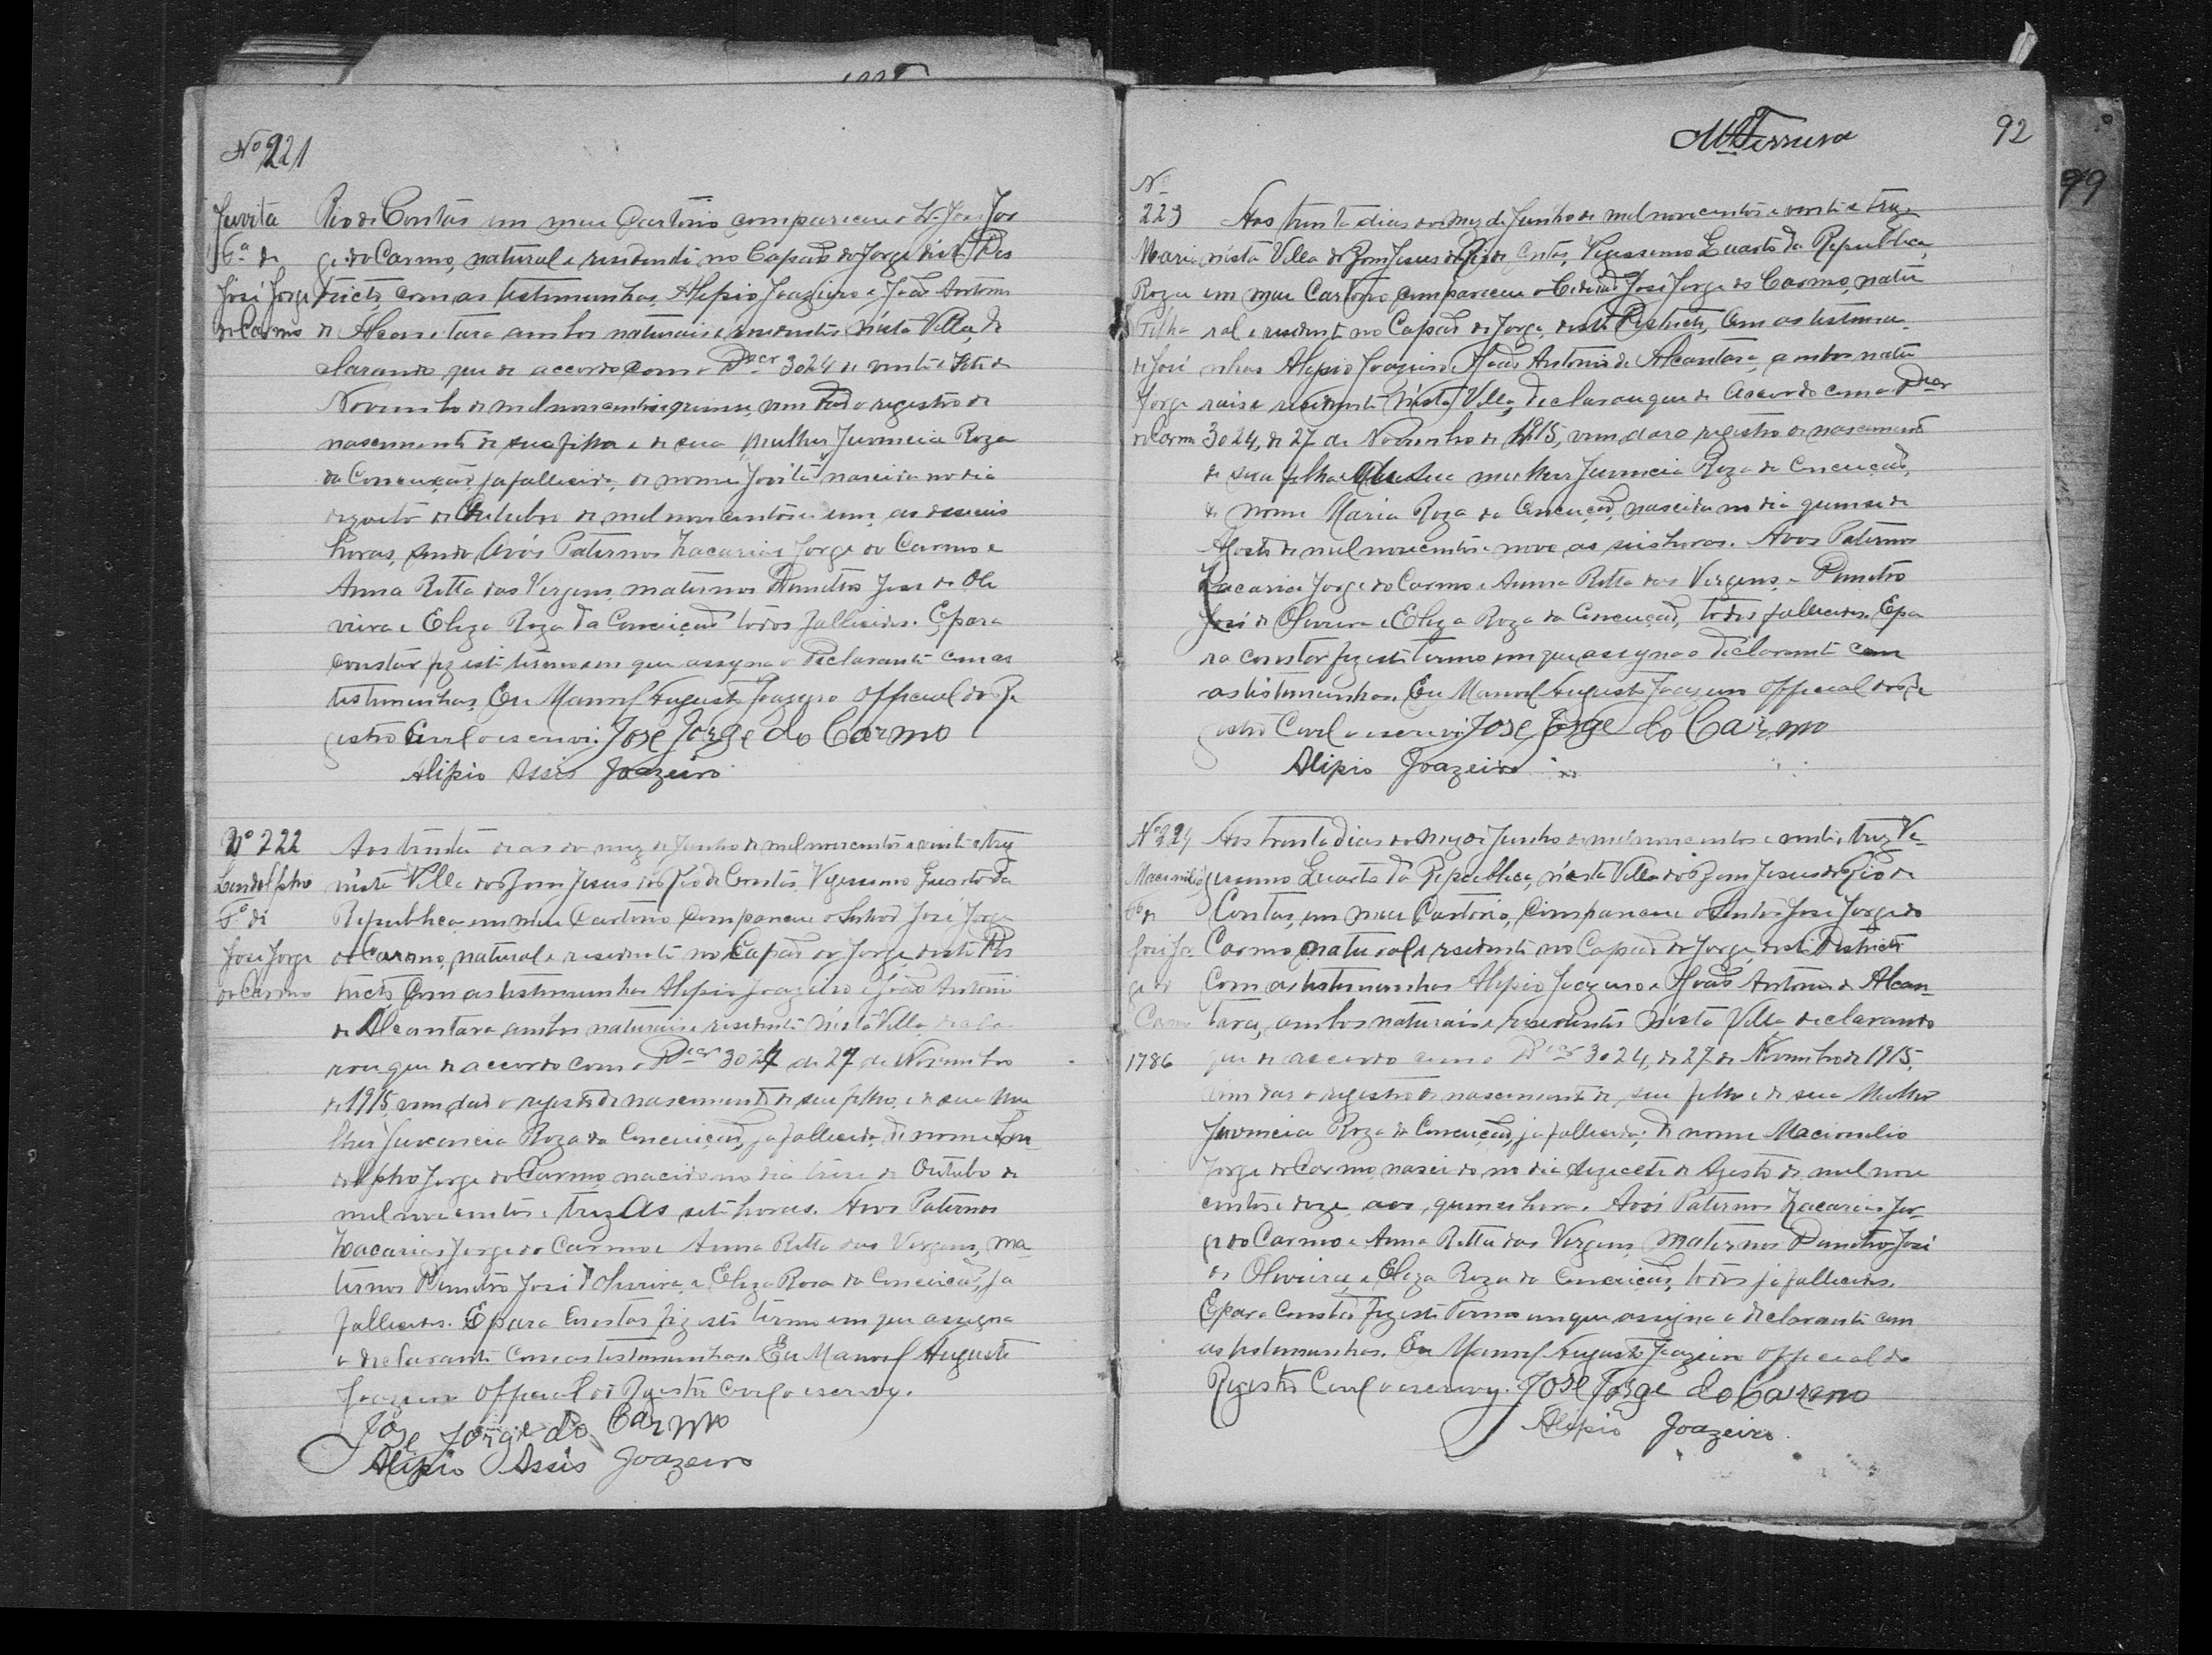 Nº 221
Juvita
Fª de
José Jorge
do Carmo
Rio de Contas em meu Cartorio compareceu o Sr. José Jor
ge do Carmo, natural e residente no Capão do Jorge deste Des
tricto, com as testimunhas Alipio Joazeiro e João Antonio
de Alcantara ambos naturais e residentes nésta Villa, de
clarando que de accordo com o Decr 3024 de vinte e sete de
Novembro de mil novecentos e quinse, vem dar o registro de
nascimento de sua filha e de sua mulher Juvencia Roza
da Conceição, ja fallecida, de nome "Jovita" nascida no dia
dezoito de Outubro de mil novecentos e um, as deseis
horas, sendo Avós Paternos Zacarias Jorge do Carmo e
Anna Ritta das Vergens, maternos Demetro José de Oli
veira e Eliza Roza da Conceição todos fallecidos. E para
constar fiz este termo em que assigna o Declarante com as
testimunhas. Eu Manoel Augusto Joazeiro Official do Re
gistro Civil o escrevi. José Jorge do Carmo
Alipio Assis Joazeiro
Nº 222
Landolpho
Fº de
José Jorge
do Carmo
Aos trinta dias do mez de Junho de mil novecentos e vinte e trez
nésta Villa do Bom Jesus do Rio de Contas, Vigessimo Quarto da
Republica em meu Cartorio compareceu o Senhor José Jorge
do Carmo, natural e residente no Capão do Jorge deste Des
tricto, com as testimunhas Alipio Joazeiro e João Antoni
de Alcantara ambos naturais e residente nésta Villa decla
rou que de accordo com o Decr 3024 de 27 de Novembro
de 1915, vem dar o registro de nascimento de seu filho, e de sua Mu
lher Juvencia Roza da Conceição, ja fallecida, de nome Lan
dolpho Jorge do Carmo, nacido no dia treze de Outubo de
mil novecentos e trez As sete horas. Avos Paternos
Zacarias Jorge do Carmo e Anna Ritta das Vergens, ma-
ternos Demetro José d'Oliveira, e Eliza Rosa da Conceição, ja
fallecidos. E para constar fiz este termo em que assigna
o declarante com as testimunhas. Eu Manoel Augusto
Joazeiro Official do Registro Civil o escrevy.
José Jorge do Carmo
Alipio Assis Joazeiro
92
99
Nº
223
Maria
Roza
Filha
de José
Jorge
do Carm
Aos trinta dias do mez de Junho de mil novecentos e vinte e trez
nésta Villa do Bom Jesus do Rio de Contas, Vigessemo Quarto da Republica,
em meu Cartorio compareceu o Cidadão José Jorge do Carmo, natu
ral e residente no Capão do Jorge deste Destricto, com as testimu
nhas Alipio Joazeiro e João Antonio de Alcantara, ambos natu
rais e residente nésta Villa, declarou que de accordo com o Decr
3024, de 27 de Novembro de 1915, vem dar o registro de nascimento
de sua filha e de sua mulher Juvencia Roza da Conceição,
de nome Maria Roza da Conceição, nascida no dia quinse de
Agosto de mil novecentos e nove as seis horas. Avos Paternos
Zacaria Jorge do Carmo e Anna Ritta das Vergens, e Demetro
José de Oliveira e Eliza Roza da Conceição, todos fallecidos. E pa
ra constar fiz este termo em que assigna o declarante com
as testimunhas. Eu Manoel Augusto Joazeiro Official do Re
gistro Civil o escrevi José Jorge do Carmo
Alipio Joazeiro
Nº 224
Macimilio
Fº de
José Jor
ge do
Carmo
1786
Aos trinta dias do mez de Junho de mil novecentos e vinte e trez Ve
gessimo Quarto da Republica, nésta Villa do Bom Jesus do Rio de
Contas, em meu Cartorio, compareceu o Senhor José Jorge do
Carmo, natural e residente no Capão do Jorge deste Destricto
Com as testimunhas Alipio Joazeiro e João Antonio de Alcan
tara, ambos naturais e residentes nésta Villa declarando
que de accordo com o Decr 3024, de 27 de Novembro de 1915,
vem dar o registro de nascimento de seu filho e de sua Mulher
Juvencia Roza da Conceição, ja fallecida, de nome Macimilio
Jorge do Carmo, nascido no dia dezecete de Agosto de mil nove
centos e doze, aos quinse horas. Avós Paternos Zacarias Jor
ge do Carmo e Anna Ritta das Vergens, Maternos Demetro José
de Oliveira e Eliza Roza da Conceição, todos ja fallecidos.
E para constar fiz este termo em que assigna o declarante com
as testimunhas. Eu Manoel Augusto Joazeiro Official do
Registro Civil o escrevy. José Jorge do Carmo
Alipio Joazeiro